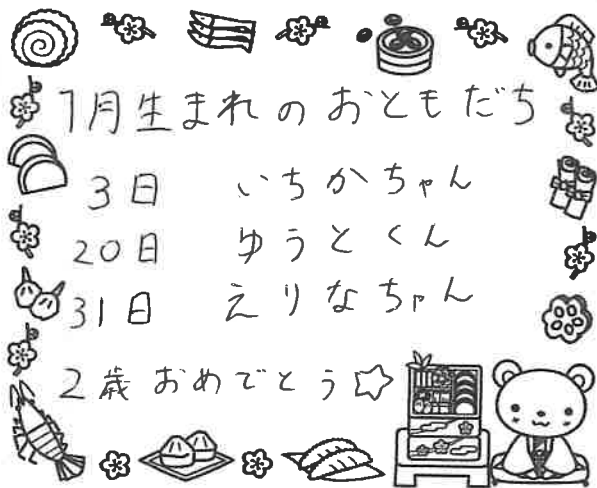 1月生まれのおともだち
3日 いちかちゃん
20日 ゆうとくん
31日 えりなちゃん
2歳おめでとう☆